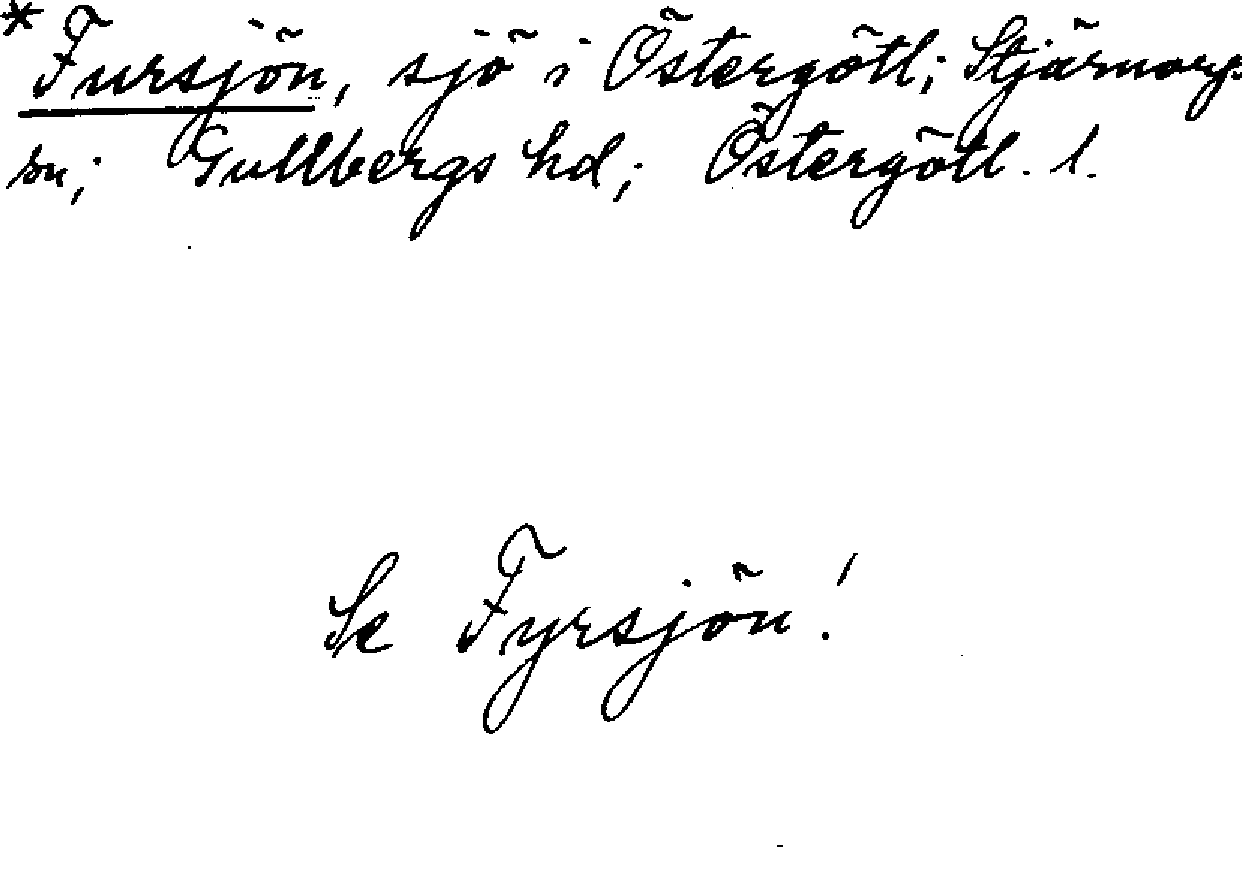 *Fursjön, sjö i Östergötl; Stjärnorps
sn; Gullbergs hd; Östergötl. l.
Se Fyrsjön!